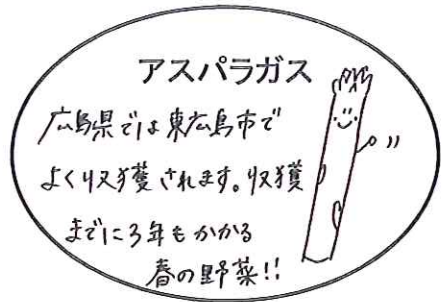 アスパラガス
広島県では東広島市で
よく収獲されます。収獲
までに3年もかかる
春の野菜!!